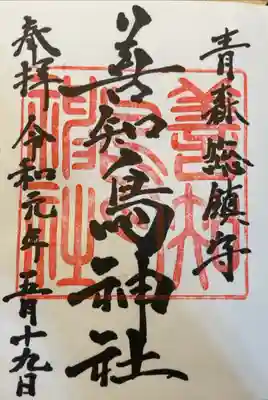 青森総鎮守
善知鳥神社
奉拝 令和元年五月十九日